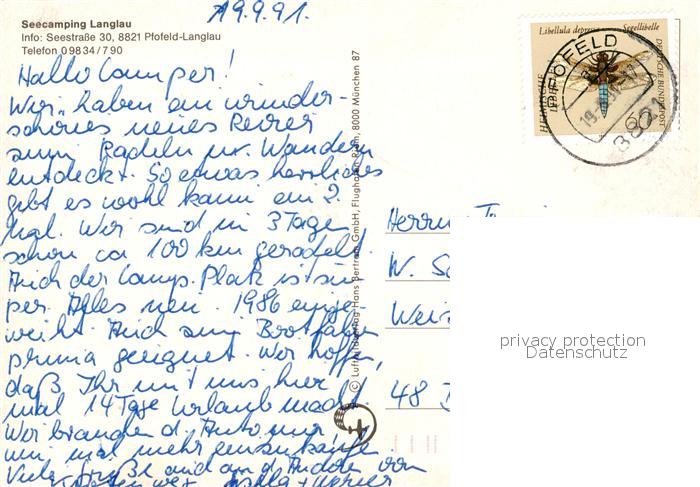 19.9.91.
Seecamping Langlau
Info: Seestraße 30, 8821 Pfofeld-Langlau
Telefon 09834/790
Hallo Camper!
Wir haben ein wunder-
schönes neues Revier
zum Radeln u. Wandern
entdeckt. So etwas herrliches
gibt es wohl kaum ein 2.
mal. Wir sind in 3 Tagen
schon ca 100 km geradelt.
Auch der Camp. Platz ist su
per. Alles neu. 1986 einge-
weiht. Auch zum Bootfahren
prima geeignet. Wir hoffen,
daß Ihr mit uns hier
mal 14 Tage Urlaub macht.
Wir brauchen d. Auto nur
um mal mehr einzukaufen.
Viele Grüße auch an d. Andern von
© Luftbildverlag Hans Bertram GmbH, Flughafen Riem, 8000 München 87
Libellula depressa Segellibelle
HEIMISCHE LIBELLEN
DEUTSCHE BUNDESPOST
60
PFOFELD
8821
Herrn
W.
48
privacy protection
Datenschutz